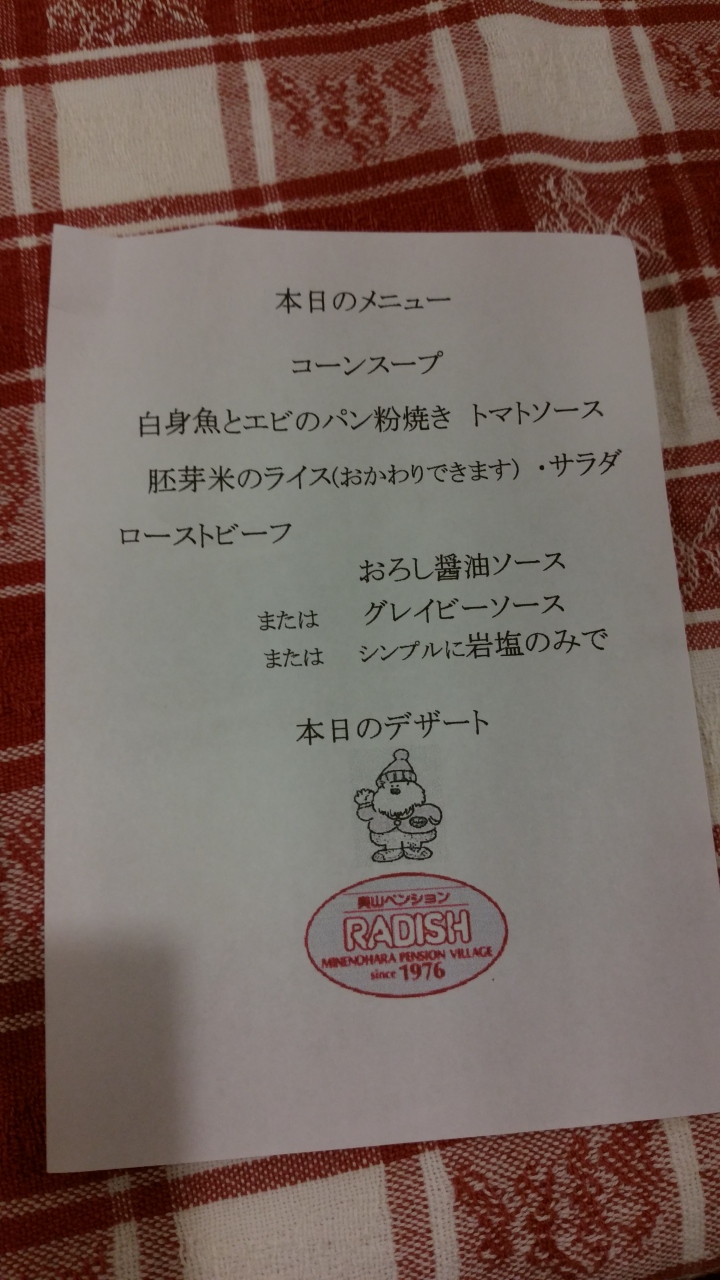 本日のメニュー
コーンスープ
白身魚とエビのパン粉焼き トマトソース
胚芽米のライス(おかわりできます) ・サラダ
ローストビーフ
おろし醤油ソース
または グレイビーソース
または シンプルに岩塩のみで
本日のデザート
奥山ペンション
RADISH
MINENOHARA PENSION VILLAGE
since 1976